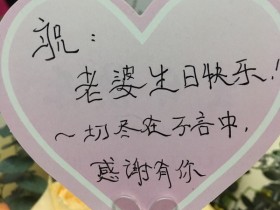 祝：
老婆生日快乐！
一切尽在不言中，
感谢有你